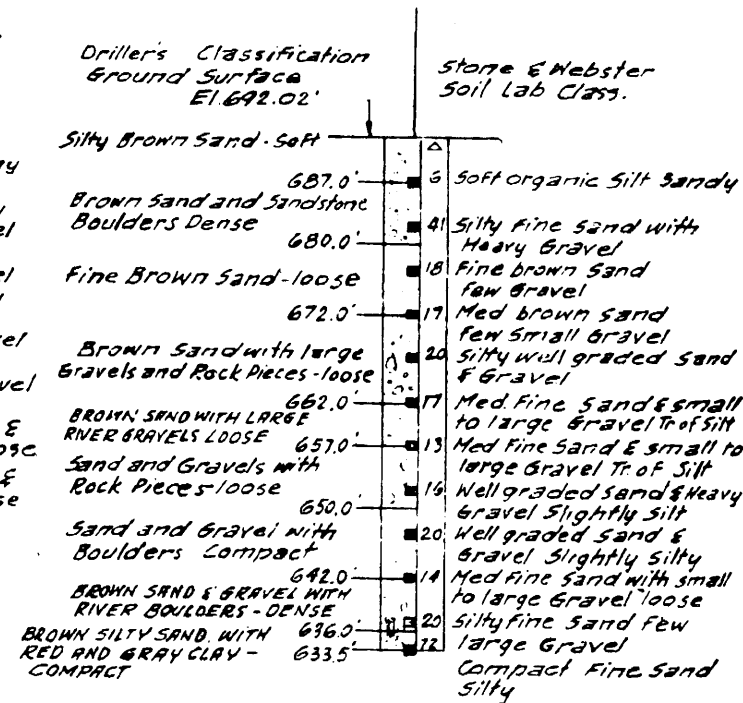 Driller's Classification
Ground Surface
El. 692.02'
Silty Brown Sand - Soft
687.0'
Brown Sand and Sandstone
Boulders Dense
680.0'
Fine Brown Sand - loose
672.0'
Brown Sand with large
Gravels and Rock Pieces - loose
662.0'
BROWN SAND WITH LARGE
RIVER GRAVELS LOOSE
657.0'
Sand and Gravels with
Rock Pieces - loose
650.0'
Sand and Gravel with
Boulders Compact
642.0'
BROWN SAND & GRAVEL WITH
RIVER BOULDERS - DENSE
636.0'
BROWN SILTY SAND WITH
RED AND GRAY CLAY -
COMPACT
633.5'
Stone & Webster
Soil Lab Class.
6 Soft organic Silt Sandy
41 Silty Fine Sand with
Heavy Gravel
18 Fine brown Sand
few Gravel
17 Med brown sand
few Small Gravel
20 Silty well graded Sand
& Gravel
17 Med. Fine Sand & small
to large Gravel Tr of Silt
13 Med Fine Sand & small to
large Gravel Tr. of Silt
16 Well graded Sand & Heavy
Gravel Slightly Silt
20 Well graded Sand &
Gravel Slightly Silty
14 Med Fine Sand with small
to large Gravel loose
20 Silty fine Sand Few
large Gravel
Compact Fine Sand
Silty